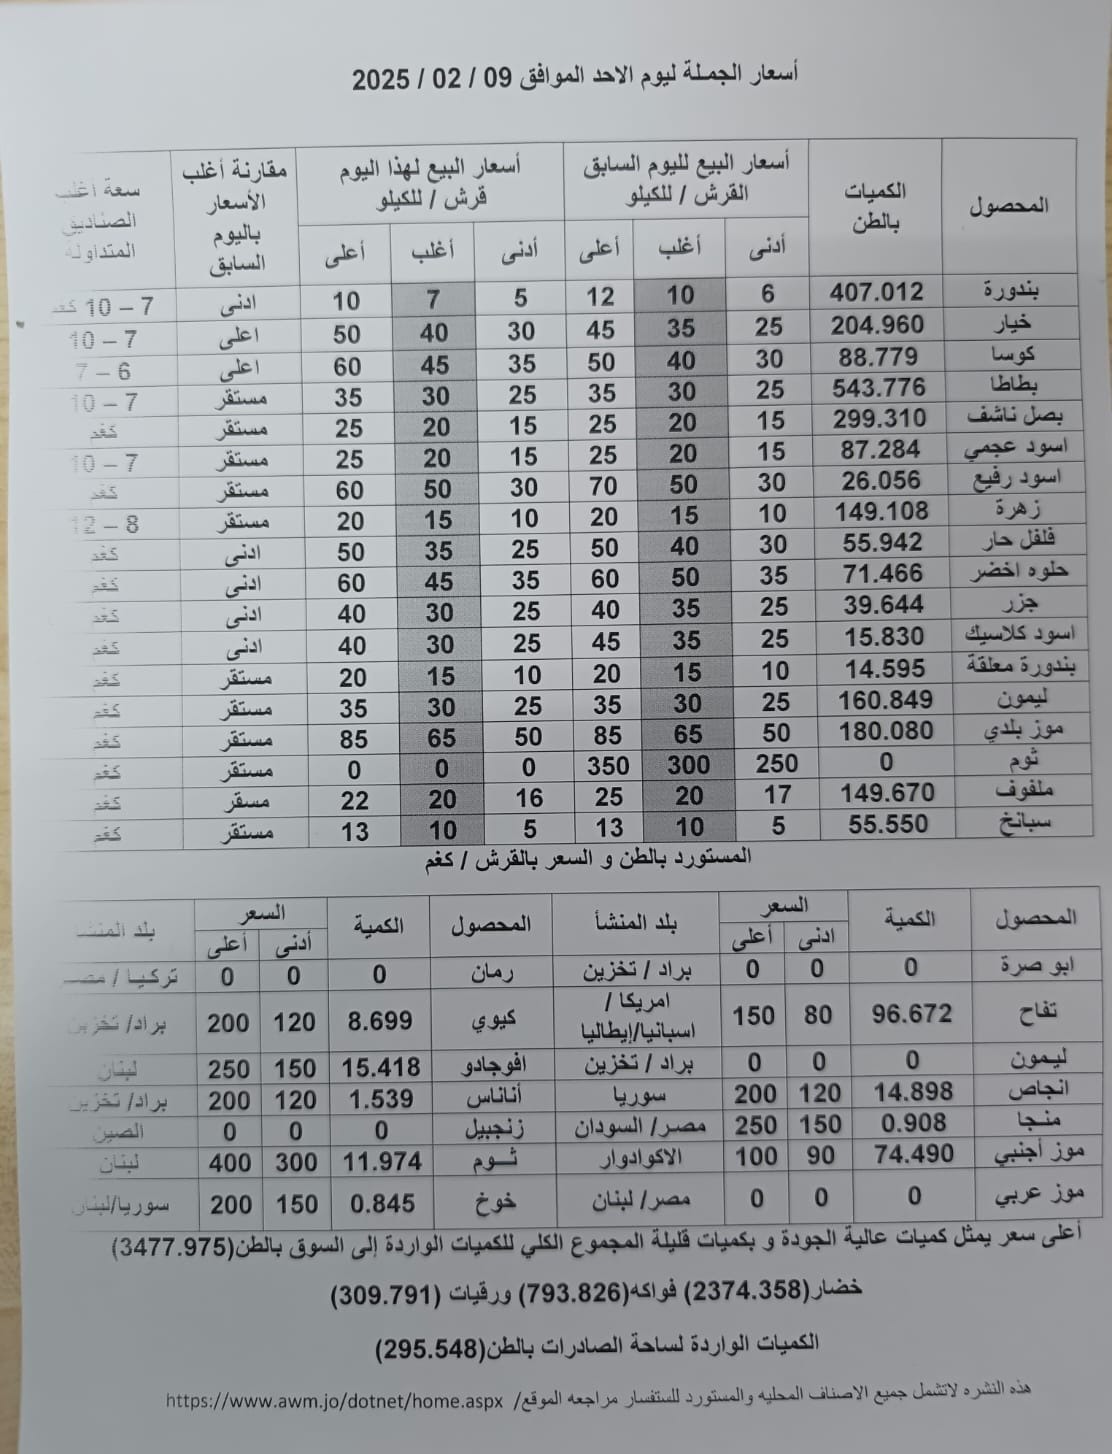 أسعار الجملة ليوم الاحد الموافق 09 / 02 / 2025
المحصول الكميات بالطن أسعار البيع لليوم السابق القرش / للكيلو أسعار البيع لهذا اليوم قرش / للكيلو مقارنة أغلب الأسعار باليوم السابق سعة أغلب الصناديق المتداولة
أدنى أغلب أعلى أدنى أغلب أعلى
بندورة 407.012 6 10 12 5 7 10 ادنى 7 – 10 كغم
خيار 204.960 25 35 45 30 40 50 اعلى 7 – 10
كوسا 88.779 30 40 50 35 45 60 اعلى 6 – 7
بطاطا 543.776 25 30 35 25 30 35 مستقر 7 – 10
بصل ناشف 299.310 15 20 25 15 20 25 مستقر كغم
اسود عجمي 87.284 15 20 25 15 20 25 مستقر 7 – 10
اسود رفيع 26.056 30 50 70 30 50 60 مستقر كغم
زهرة 149.108 10 15 20 10 15 20 مستقر 8 – 12
فلفل حار 55.942 30 40 50 25 35 50 ادنى كغم
حلوه اخضر 71.466 35 50 60 35 45 60 ادنى كغم
جزر 39.644 25 35 40 25 30 40 ادنى كغم
اسود كلاسيك 15.830 25 35 45 25 30 40 ادنى كغم
بندورة معلقة 14.595 10 15 20 10 15 20 مستقر كغم
ليمون 160.849 25 30 35 25 30 35 مستقر كغم
موز بلدي 180.080 50 65 85 50 65 85 مستقر كغم
ثوم 0 250 300 350 0 0 0 مستقر كغم
ملفوف 149.670 17 20 25 16 20 22 مسقر كغم
سبانخ 55.550 5 10 13 5 10 13 مستقر كغم
المستورد بالطن و السعر بالقرش / كغم
المحصول الكمية السعر بلد المنشأ المحصول الكمية السعر بلد المنشأ
ادنى أعلى أدنى أعلى
ابو صرة 0 0 0 براد / تخزين رمان 0 0 0 تركيا / مصر
تفاح 96.672 80 150 امريكا / اسبانيا/إيطاليا كيوي 8.699 120 200 براد/ تخزين
ليمون 0 0 0 براد / تخزين افوجادو 15.418 150 250 لبنان
انجاص 14.898 120 200 سوريا أناناس 1.539 120 200 براد/ تخزين
منجا 0.908 150 250 مصر/ السودان زنجبيل 0 0 0 الصين
موز أجنبي 74.490 90 100 الاكوادوار ثـوم 11.974 300 400 لبنان
موز عربي 0 0 0 مصر/ لبنان خوخ 0.845 150 200 سوريا/لبنان
أعلى سعر يمثل كميات عالية الجودة و بكميات قليلة المجموع الكلي للكميات الواردة إلى السوق بالطن(3477.975)
خضار(2374.358) فواكه(793.826) ورقيات (309.791)
الكميات الواردة لساحة الصادرات بالطن(295.548)
هذه النشره لاتشمل جميع الاصناف المحليه والمستورد للستفسار مراجعه الموقع/ https://www.awm.jo/dotnet/home.aspx